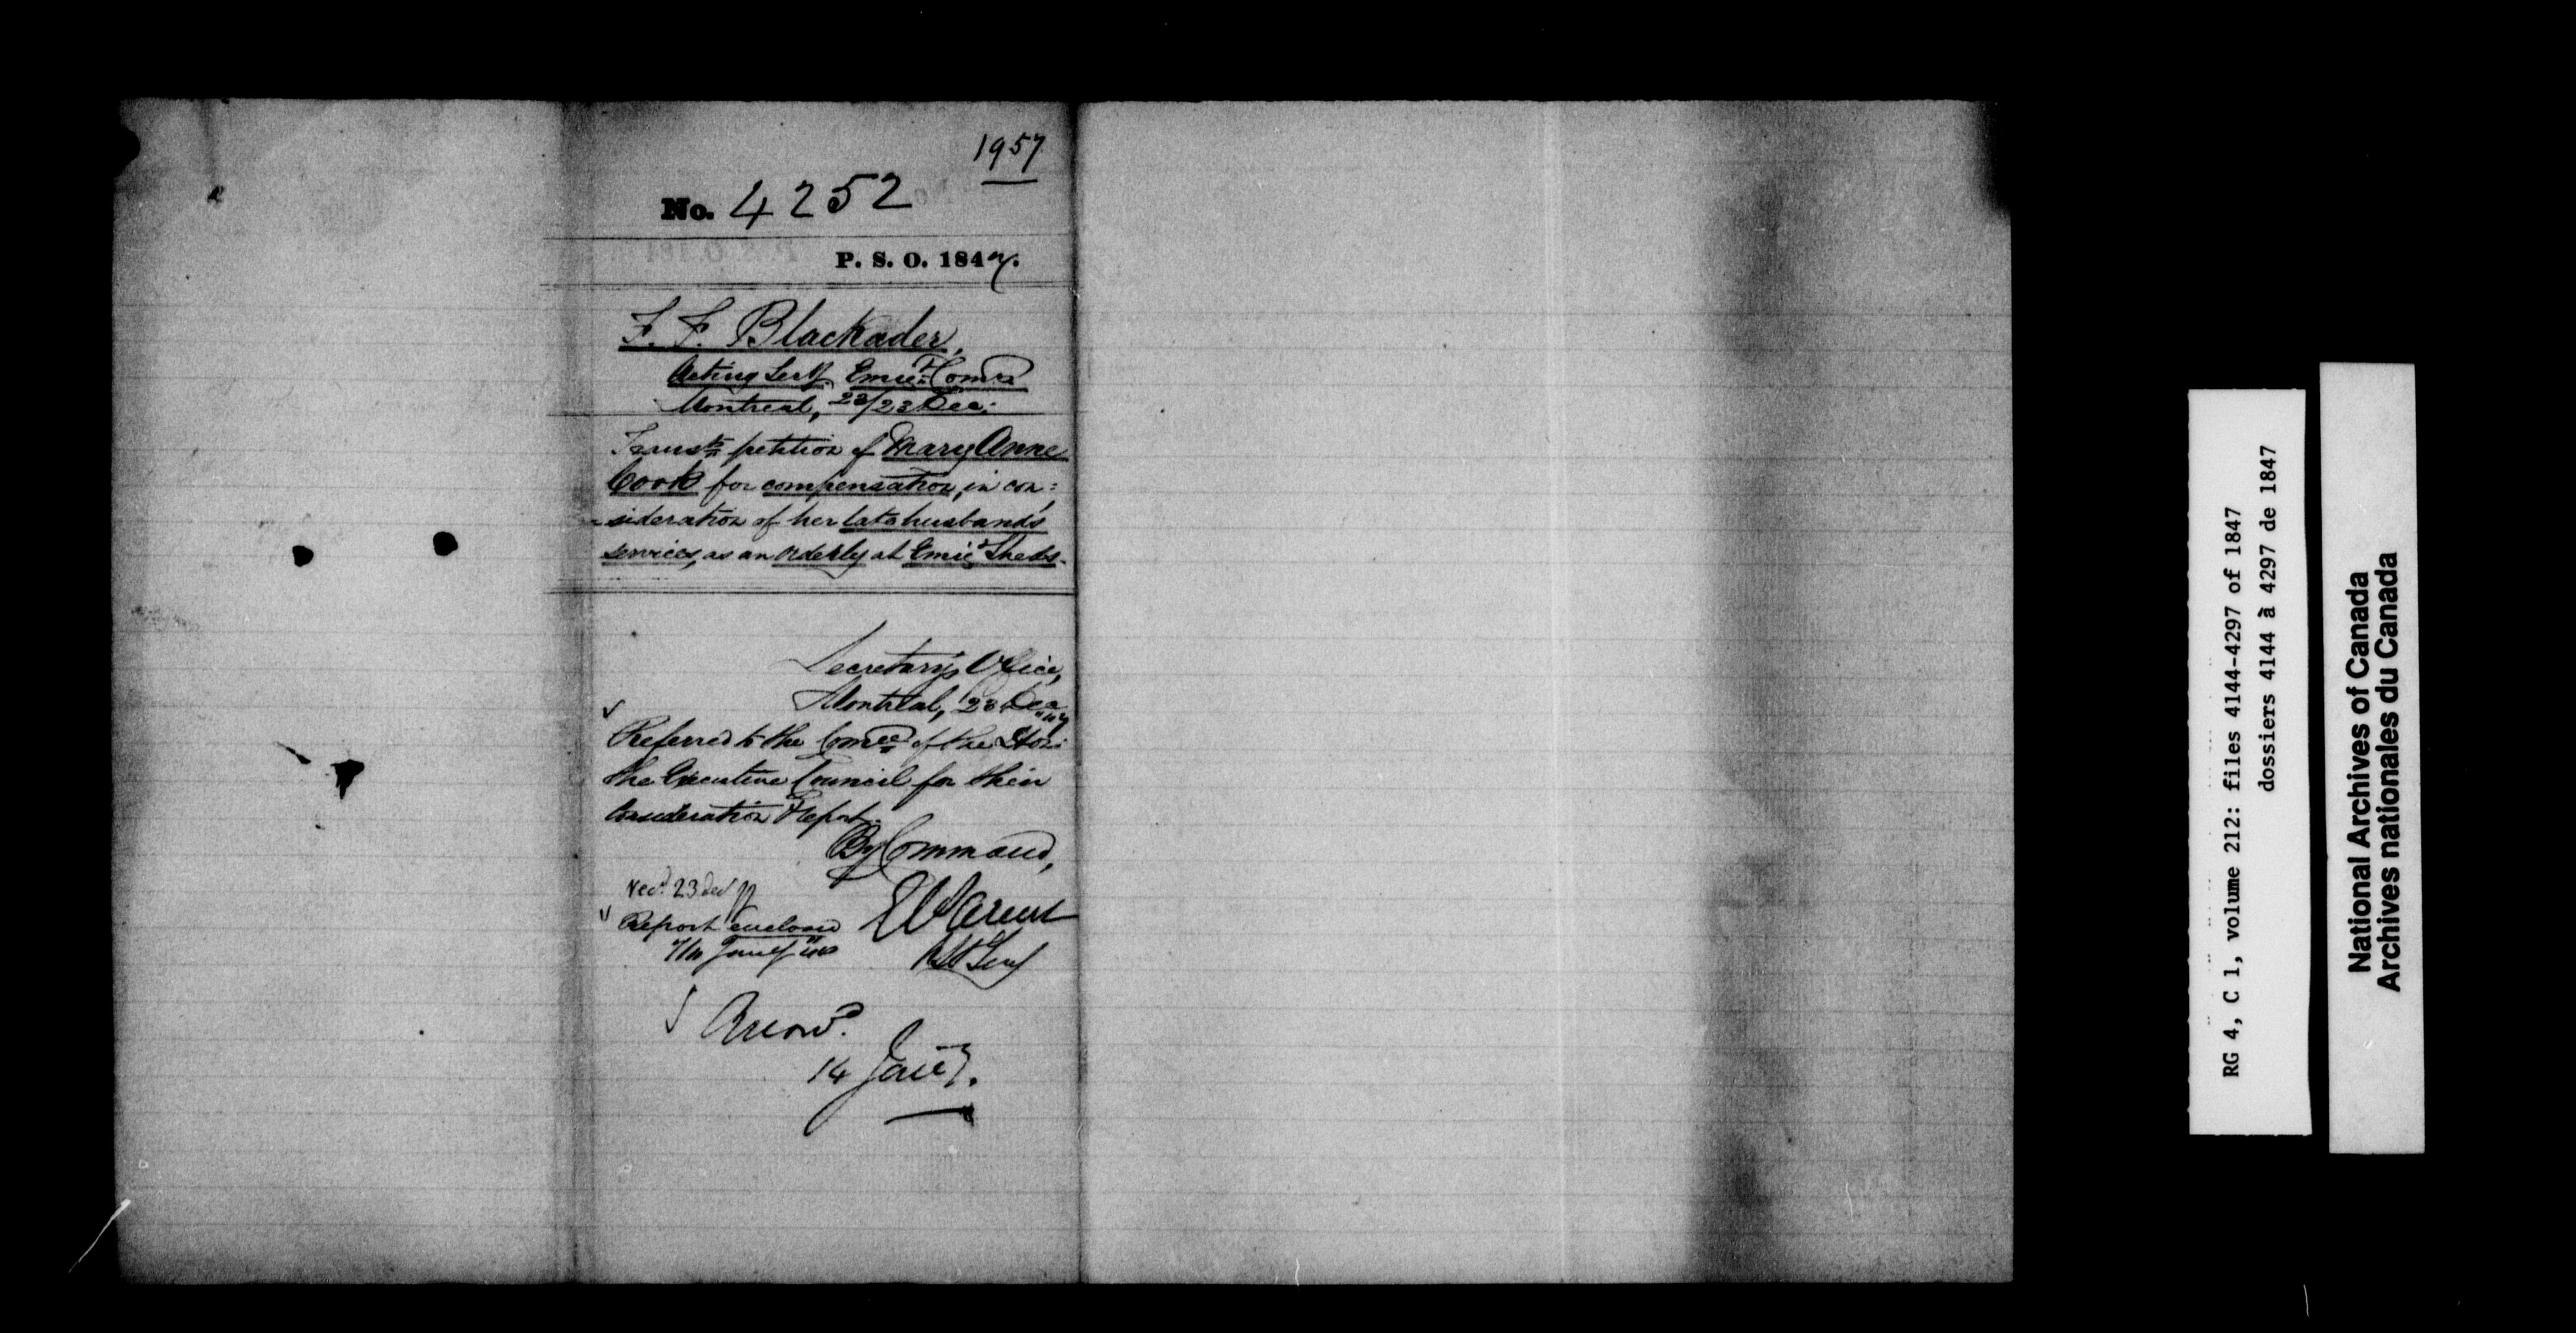 1957
No. 4252
P. S. O. 1847.
F. F. Blackader,
Acting Secy. Emign. Comrs
Montreal, 23/23 Dec:
Transtg petition of Mary Anne
Cook for compensation, in con:
sideration of her late husband's
services, as an orderly at Emigt Sheds.
Secretary's Office,
Montreal, 23 Dec
"47
Referred to the Comee of the Hon:
the Executive Council for their
Consideration & Report.
By Command,
Recd. 23 Dec
E Parent
Report enclosed
Asst Secy
Answd.
14 Jany.
RG 4, C 1, volume 212: files 4144-4297 of 1847
dossiers 4144 à 4297 de 1847
National Archives of Canada
Archives nationales du Canada